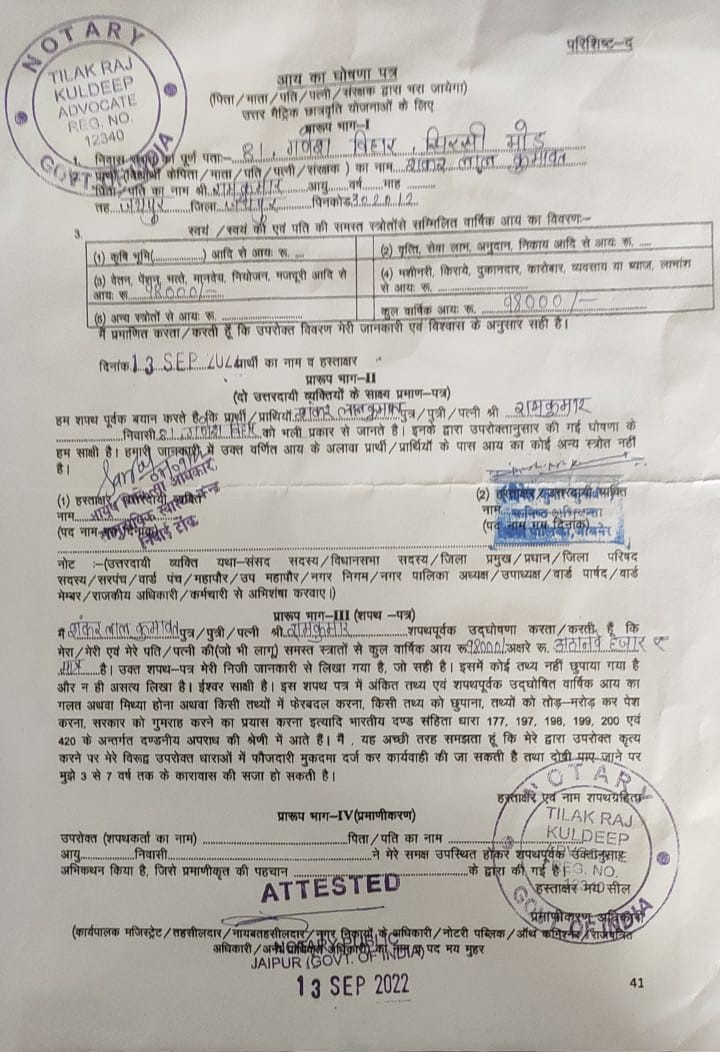 NOTARY
TILAK RAJ
KULDEEP
ADVOCATE
REG. NO.
12340
GOVT. INDIA
परिशिष्ट-द
आय का घोषणा पत्र
(पिता/माता/पति/पत्नी/संरक्षक द्वारा भरा जायेगा)
उत्तर मैट्रिक छात्रवृति योजनाओं के लिए
प्रारूप भाग-I
1. निवास का पूर्ण पताः- 81, गणेश विहार, सिरसी मोड़
पिता/माता/पति/पत्नी/संरक्षक) का नाम शंकर लाल कुमावत
पिता/पति का नाम श्री रामकुमार आयु वर्ष माह
तह. जयपुर जिला जयपुर पिनकोड 302012
3. स्वयं/स्वयं की एवं पति की समस्त स्त्रोतोंसे सम्मिलित वार्षिक आय का विवरणः-
(1) कृषि भूमि(...............) आदि से आयः रू. ....
(2) वृत्ति, सेवा लाभ, अनुदान, निकाय आदि से आयः रू. ....
(3) वेतन, पेंशन, भत्ते, मानदेय, नियोजन, मजदूरी आदि से
आयः रू. 98000/-
(4) मशीनरी, किराये, दुकानदार, कारोबार, व्यवसाय या ब्याज, लाभांश
से आयः रू.
(5) अन्य स्त्रोतों से आयः रू.
कुल वार्षिक आयः रू. 98000/-
मैं प्रमाणित करता/करती हूँ कि उपरोक्त विवरण मेरी जानकारी एवं विश्वास के अनुसार सही है।
दिनांक 13 SEP 2022 प्रार्थी का नाम व हस्ताक्षर
प्रारूप भाग-II
(दो उत्तरदायी व्यक्तियों के साक्ष्य प्रमाण-पत्र)
हम शपथ पूर्वक बयान करते हैं कि प्रार्थी/प्रार्थियों शंकर लाल कुमावत पुत्र/पुत्री/पत्नी श्री रामकुमार
निवासी 81, गणेश विहार को भली प्रकार से जानते है। इनके द्वारा उपरोक्तानुसार की गई घोषणा के
हम साक्षी है। हमारी जानकारी में उक्त वर्णित आय के अलावा प्रार्थी/प्रार्थियों के पास आय का कोई अन्य स्त्रोत नहीं
है।
(1) हस्ताक्षर उत्तरदायी व्यक्ति
नाम
(पद नाम मय दिनांक)
सामुदायिक स्वास्थ्य केन्द्र
निवाई टोंक
(2) हस्ताक्षर उत्तरदायी व्यक्ति
नाम
(पद नाम मय दिनांक)
नोट :-(उत्तरदायी व्यक्ति यथा-संसद सदस्य/विधानसभा सदस्य/जिला प्रमुख/प्रधान/जिला परिषद
सदस्य/सरपंच/वार्ड पंच/महापौर/उप महापौर/नगर निगम/नगर पालिका अध्यक्ष/उपाध्यक्ष/वार्ड पार्षद/वार्ड
मेम्बर/राजकीय अधिकारी/कर्मचारी से अभिशंषा करवाए।)
प्रारूप भाग-III (शपथ -पत्र)
मैं शंकर लाल कुमावत पुत्र/पुत्री/पत्नी श्री रामकुमार शपथपूर्वक उद्घोषणा करता/करती, हूँ कि
मेरा/मेरी एवं मेरे पति/पत्नी की(जो भी लागू) समस्त स्त्रातों से कुल वार्षिक आय रू 98000/ अक्षरे रू. अठानवे हजार रु
मात्र है। उक्त शपथ-पत्र मेरी निजी जानकारी से लिखा गया है, जो सही है। इसमें कोई तथ्य नहीं छुपाया गया है
और न ही असत्य लिखा है। ईश्वर साक्षी है। इस शपथ पत्र में अंकित तथ्य एवं शपथपूर्वक उद्घोषित वार्षिक आय का
गलत अथवा मिथ्या होना अथवा किसी तथ्यों में फेरबदल करना, किसी तथ्य को छुपाना, तथ्यों को तोड़-मरोड़ कर पेश
करना, सरकार को गुमराह करने का प्रयास करना इत्यादि भारतीय दण्ड संहिता धारा 177, 197, 198, 199, 200 एवं
420 के अन्तर्गत दण्डनीय अपराध की श्रेणी में आते हैं। मैं , यह अच्छी तरह समझता हूं कि मेरे द्वारा उपरोक्त कृत्य
करने पर मेरे विरूद्व उपरोक्त धाराओं में फौजदारी मुकदमा दर्ज कर कार्यवाही की जा सकती है तथा दोषी पाए जाने पर
मुझे 3 से 7 वर्ष तक के कारावास की सजा हो सकती है।
हस्ताक्षर एवं नाम शपथग्रहिता
प्रारूप भाग-IV(प्रमाणीकरण)
उपरोक्त (शपथकर्ता का नाम) पिता/पति का नाम
आयु निवासी ने मेरे समक्ष उपस्थित होकर शपथपूर्वक उक्तानुसार
अभिकथन किया है, जिसे प्रमाणीकृत की पहचान के द्वारा की गई है।
NOTARY
TILAK RAJ
KULDEEP
ADVOCATE
REG. NO.
12340
हस्ताक्षर मय सील
ATTESTED
प्रमाणीकरण अधिकारी
(कार्यपालक मजिस्ट्रेट/तहसीलदार/नायबतहसीलदार/नगर निकायों के अधिकारी/नोटरी पब्लिक/ऑथ कमिश्नर/राजपत्रित
अधिकारी/अन्य प्राधिकृत अधिकारी) का नाम व पद मय मुहर
NOTARY PUBLIC
JAIPUR (GOVT. OF INDIA)
13 SEP 2022
41